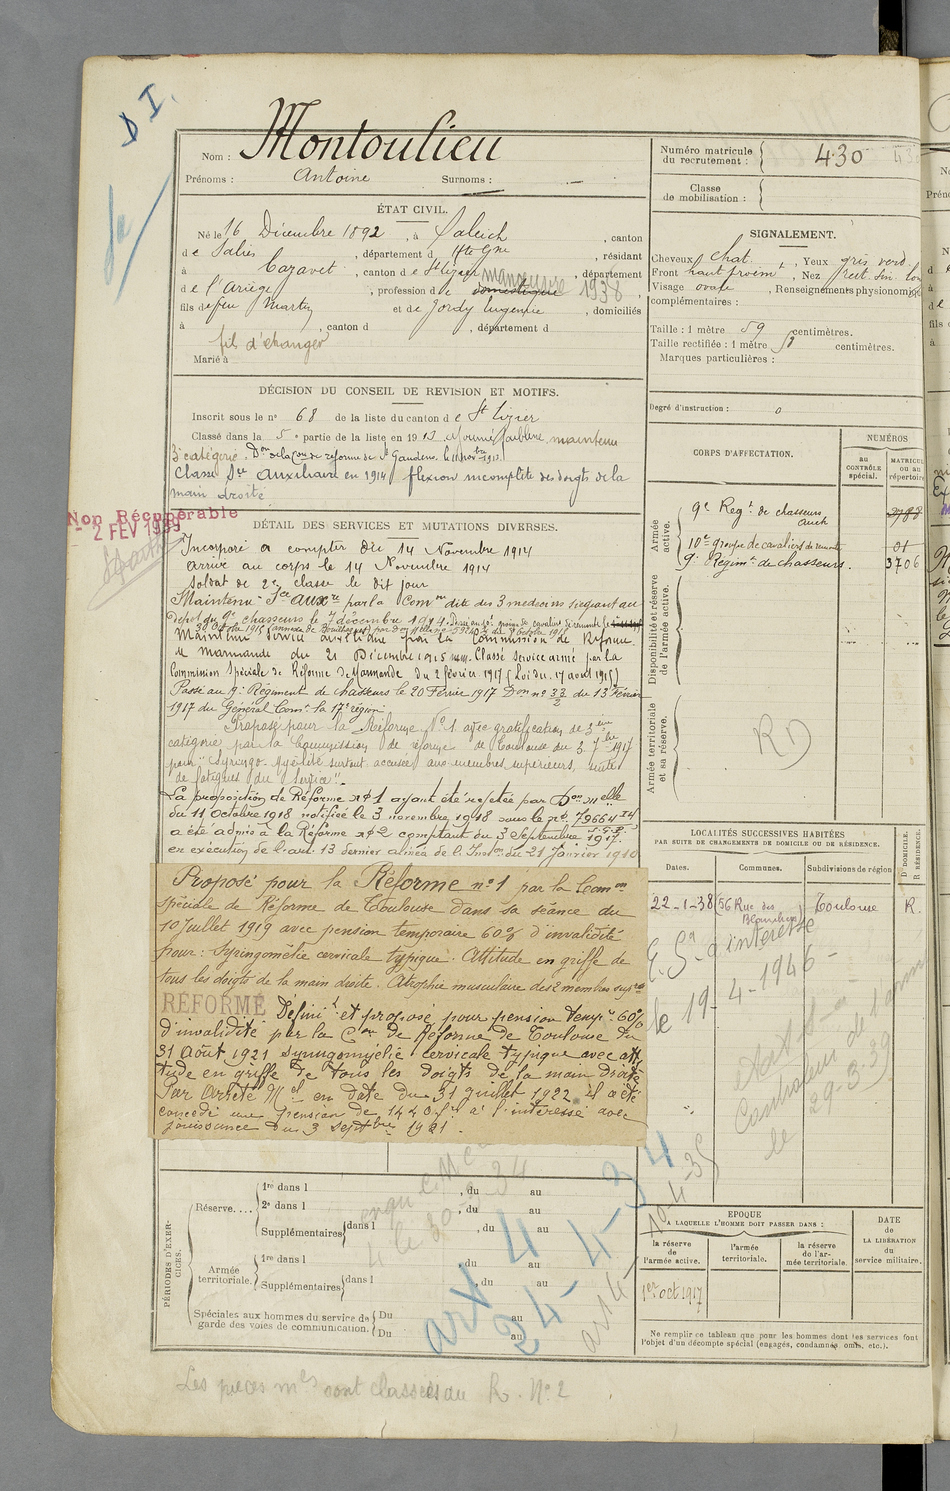 D I.
Nom : Montoulieu
Prénoms : Antoine Surnoms : —
ÉTAT CIVIL.
Né le 16 Décembre 1892, à Saleich, canton
de Salies, département d Hte Gne, résidant
à Cazavet, canton de St Lizier, département
de l'Ariège, profession de domestique manœuvre 1938,
fils de feu Martin et de Jordy Eugénie, domiciliés
à , canton d , département d
fil d'étranger
Marié à
DÉCISION DU CONSEIL DE REVISION ET MOTIFS.
Inscrit sous le n° 68 de la liste du canton de St Lizier
Classé dans la 5e partie de la liste en 1913 Ajourné faiblesse, maintenu
3e catégorie. Don de la Con de réforme de St Gaudens le 11 novbre 1913
Classé Sce Auxiliaire en 1914 flexion incomplète des doigts de la
main droite
Non Récupérable
- 2 FEV 1939
DÉTAIL DES SERVICES ET MUTATIONS DIVERSES.
Incorporé à compter du 14 Novembre 1914
arrivé au corps le 14 Novembre 1914
soldat de 2e classe le dit jour
Maintenu Sce auxre par la Comon dite des 3 médecins siégeant au
dépôt du 9e chasseurs le 7 décembre 1914.
Maintenu service auxiliaire par la Commission de Réforme
de Marmande du 21 Décembre 1915. Classé service armé par la
Commission Spéciale de Réforme de Marmande du 2 février 1917 (Loi du 17 août 1915)
Passé au 9e Régiment de chasseurs le 20 Février 1917 Don n° 33/2 du 13 Février
1917 du Général Comt la 17e région
Proposé pour la Réforme N° 1 avec gratification de 3ème
catégorie par la Commission de réforme de Toulouse du 3 7bre 1917
pour "Syringo-Myélite surtout accusée aux membres supérieurs, suite
de fatigues du service".
La proposition de Réforme n° 1 ayant été rejetée par Don Melle
du 11 Octobre 1918 notifiée le 3 novembre 1918 sous le n° 79664
a été admis à la Réforme n° 2 comptant du 3 Septembre 1917.
en exécution de l'art. 13 dernier alinéa de l'Inston du 21 Janvier 1910
Proposé pour la Réforme n° 1 par la Comon
spéciale de Réforme de Toulouse dans sa séance du
10 Juillet 1919 avec pension temporaire 60% d'invalidité
pour : Syringomélie cervicale typique. Attitude en griffe de
tous les doigts de la main droite. Atrophie musculaire des 2 membres supre
RÉFORMÉ Définit et proposé pour pension tempre 60%
d'invalidité par la Con de Réforme de Toulouse du
31 Août 1921 Syringomyélie cervicale typique avec atti
tude en griffe de tous les doigts de la main droite
Par arrêté Mel en date du 31 juillet 1922 il a été
concédé une pension de 1440 fr à l'intéressé avec
jouissance du 3 Septbre 1921.
PÉRIODES D'EXERCICES.
Réserve....
1re dans l , du au
2e dans l , du au
Supplémentaires dans l , du au
Armée territoriale.
1re dans l , du au
Supplémentaires dans l , du au
Spéciales aux hommes du service de garde des voies de communication.
Du au
Du au
art 4
24-4-34
Les pièces mles sont classées au R. N° 2
Numéro matricule du recrutement : 430
Classe de mobilisation :
SIGNALEMENT.
Cheveux chat. , Yeux gris verd.
Front haut proémt , Nez rect. sin. lon
Visage ovale , Renseignements physionomiq
complémentaires :
Taille : 1 mètre 59 centimètres.
Taille rectifiée : 1 mètre 58 centimètres.
Marques particulières :
Degré d'instruction : 0
CORPS D'AFFECTATION.
NUMÉROS
au CONTRÔLE spécial.
MATRICUL ou au répertoire
Armée active.
9e Regt de chasseurs Auch 2788
10e groupe de cavaliers de remonte 01
9e Régimt de chasseurs. 3706
Disponibilité et réserve de l'armée active.
Armée territoriale et sa réserve.
RD
LOCALITÉS SUCCESSIVES HABITÉES
PAR SUITE DE CHANGEMENTS DE DOMICILE OU DE RÉSIDENCE.
Dates. Communes. Subdivisions de région D. DOMICILE. R. RÉSIDENCE.
22-1-38 56 Rue des Blanchers Toulouse R.
à l'intéressé
le 19-4-1946
29-3-39
le
10-4-35
EPOQUE
A LAQUELLE L'HOMME DOIT PASSER DANS :
la réserve de l'armée active.
l'armée territoriale.
la réserve de l'armée territoriale.
DATE DE LA LIBÉRATION du service militaire.
1er oct 1917
Ne remplir ce tableau que pour les hommes dont les services font
l'objet d'un décompte spécial (engagés, condamnés, omis, etc.).